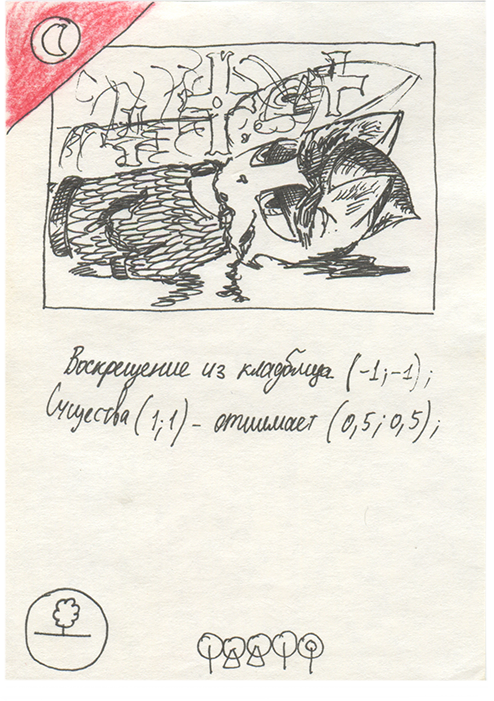 Воскрещение из кладбища (-1;-1);
Существа (1;1) - отнимает (0,5;0,5);